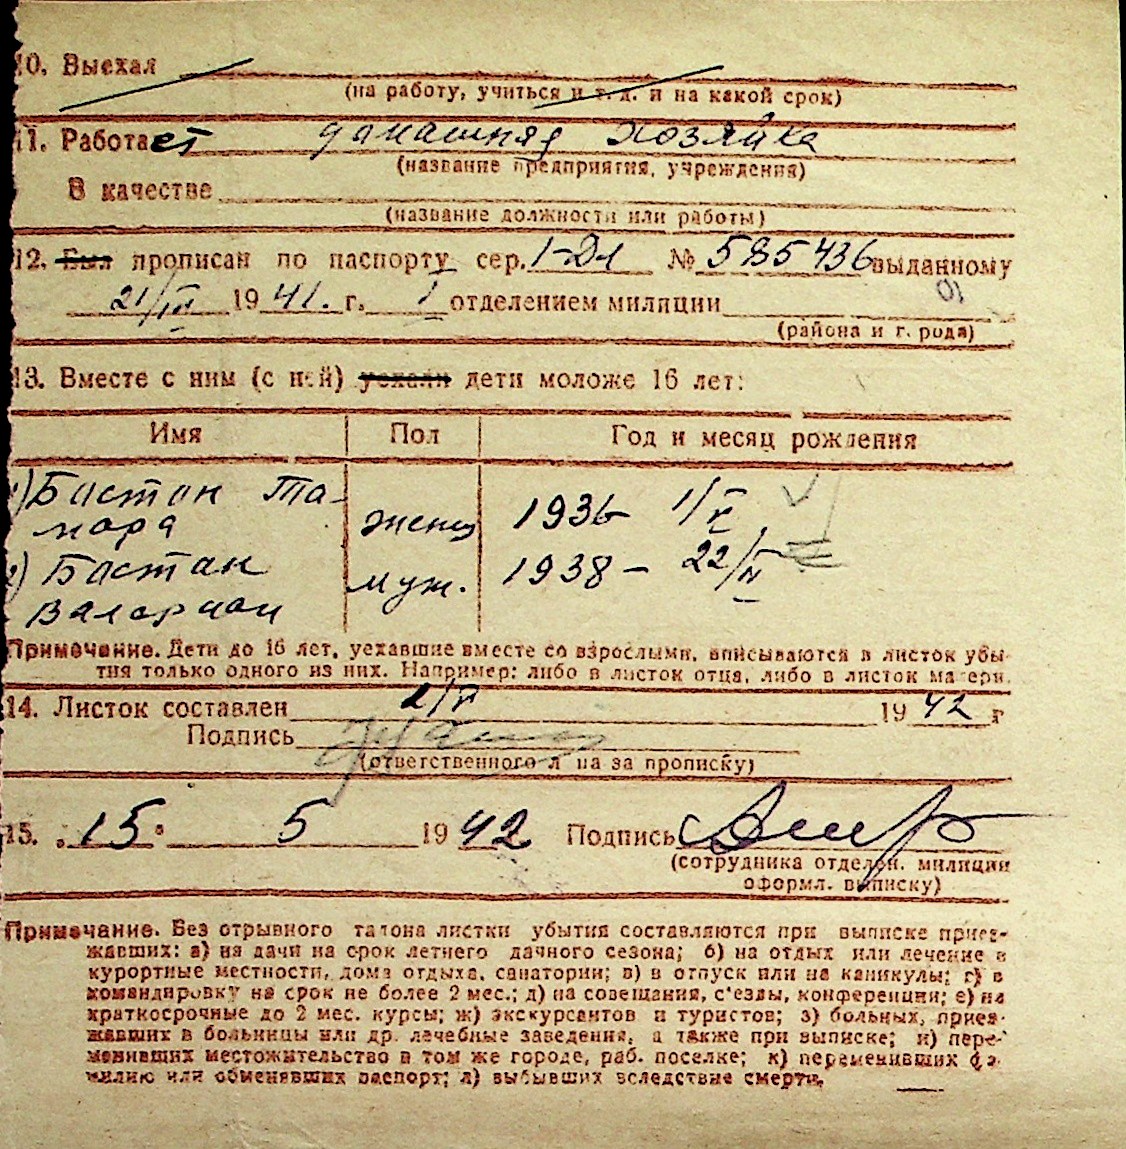 10. Выехал
(на работу, учиться и т. д. и на какой срок)
11. Работает домашняя хозяйка
(название предприятия, учреждения)
В качестве
(название должности или работы)
12. Был прописан по паспорту сер. № 585436 выданному
21/III 1941. г. I отделением милиции
(района и города)
13. Вместе с ним (с ней) уехали дети моложе 16 лет:
Имя Пол Год и месяц рождения
1) Бастан Та-
мара женщ 1936
2) Бастан муж. 1938 –
Валериан
Примечание. Дети до 16 лет, уехавшие вместе со взрослыми, вписываются в листок убы-
тия только одного из них. Например: либо в листок отца, либо в листок матери.
14. Листок составлен 1942 г
Подпись
(ответственного лица за прописку)
15. 15. 5 1942 Подпись
(сотрудника отделен. милиции
оформл. выписку)
Примечание. Без отрывного талона листки убытия составляются при выписке приез-
жавших: а) на дачи на срок летнего дачного сезона; б) на отдых или лечение в
курортные местности, дома отдыха, санатории; в) в отпуск или на каникулы; г) в
командировку на срок не более 2 мес.; д) на совещания, с'езды, конференции; е) на
краткосрочные до 2 мес. курсы; ж) экскурсантов и туристов; з) больных, приез-
жавших в больницы или др. лечебные заведения, а также при выписке; и) пере-
менивших местожительство в том же городе, раб. поселке; к) переменивших фа-
милию или обменявших паспорт; л) выбывших вследствие смерти.